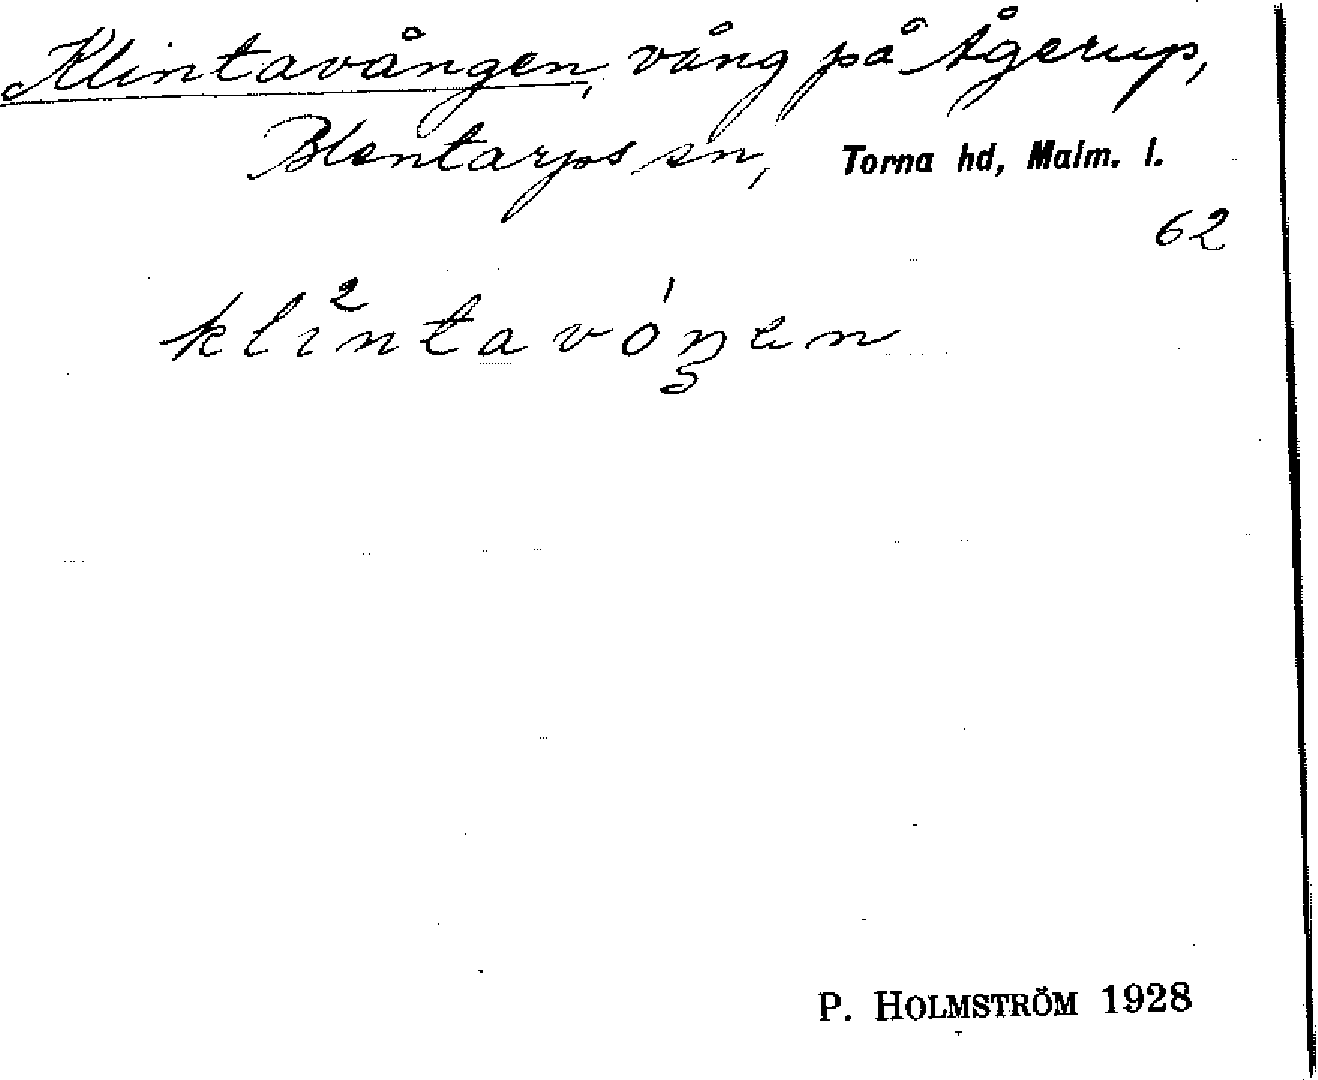 Klintavången, vång på Ågerup,
Blentarps sn, Torna hd, Malm. l.
62
kli²ntavó¹ŋen
P. HOLMSTRÖM 1928